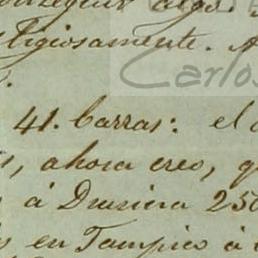 conseguir algo.
religiosamente. A
Carlos
41. barras: el
s, ahora creo, q
á Drusina 250
s en Tampico á